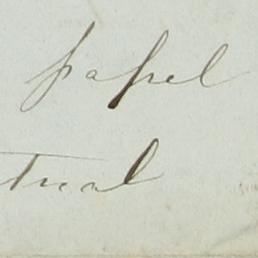 papel
trial